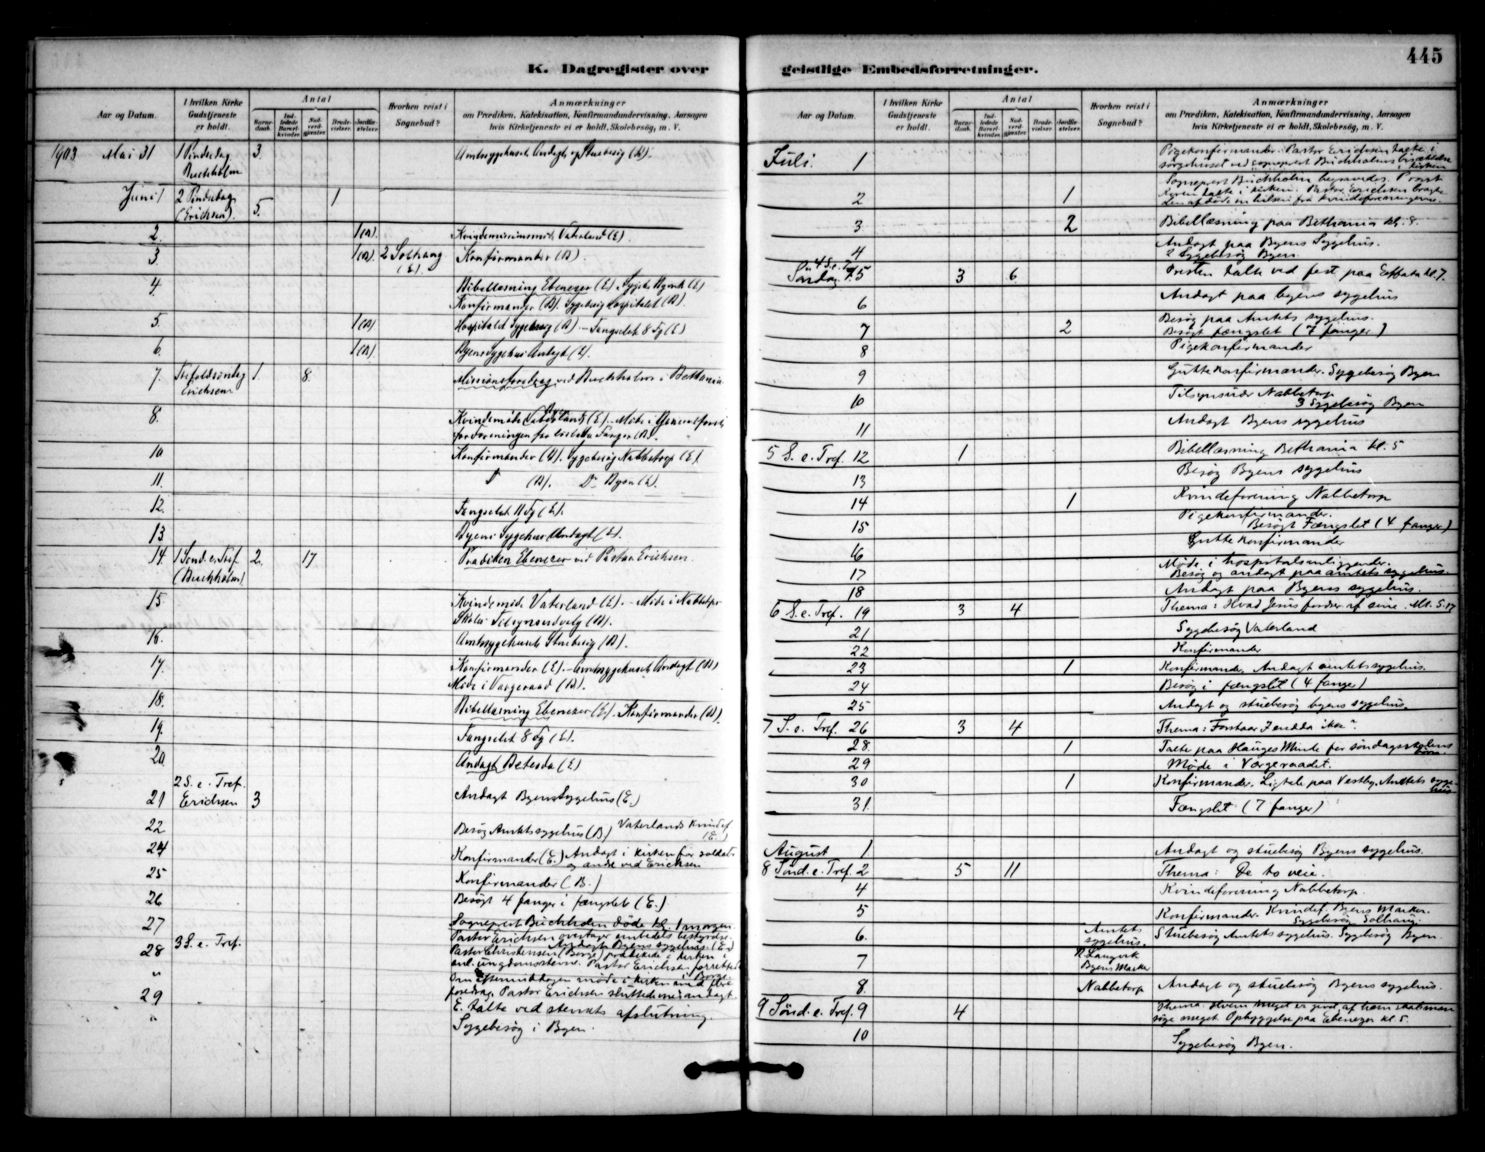 K. Dagregister over
geistlige Embedsforretninger.
445
Aar og Datum.
I hvilken Kirke Gudstjeneste er holdt.
Antal
Barnedaab.
Indledede Barselkvinder.
Nadverdgjester
Brudevielser.
Jordfæstelser.
Hvorhen reist i Sognebud?
Anmærkninger
om Prædiken, Katekisation, Konfirmandundervisning, Aarsagen
hvis Kirketjeneste ei er holdt, Skolebesøg, m. V.
1903 Mai 31 1 Pindsedag 3.
Buchholm
Amtssygehuset Andagt og Stuebesøg (B).
Juni 1 2 Pindsedag 1
(Erichsen). 5.
2. 1(B). Kvindemissionsmøde Vaterland (E).
3 1(B). 2 Solhaug Konfirmander (B).
(E).
4. Bibellæsning Ebenezer (E)
Konfirmander (B). Sygebesøg Hospitalet (B).
5. 1(B) Hospitalet Sygebesøg (B) – Fængselet 8 Fg (E)
6. 1(B). Byens Sygehus Andagt (E).
7. Trefoldsøndag 1. 8.
Erichsen
Missionsforedrag ved Buchholm i Bethania
8. Kvindemøde Vaterland (E). – Møde i
10 Konfirmander (B). Sygebesøg Nabbetorp (E).
11. (B). Do Byen (E).
12. Fængselet 11 Fg (E).
13 Byens Sygehus Andagt (E).
14. 1 Sønd. e. Tref. 2. 17
(Buchholm)
Prædiken Ebenezer ved Pastor Erichsen.
15 Kvindemøde Vaterland (E). – Møde i Nabbetorp
Skoles Tilsynsudvalg (B).
16. Amtssygehuset Stuebesøg (B).
17. Konfirmander (E). – Amtssygehuset Andagt (B)
Møde i Vægeraad (B).
18. Bibellæsning Ebenezer (E). Konfirmander (B).
19. Fængselet 8 Fg (E).
20 Andagt Betesda (E)
2 S. e. Tref.
21 Erichsen 3 Andagt Byens Sygehus (E.)
22 Besøg Amtets sygehus (B) Vaterlands Kvindef.
(E.)
24 Konfirmander (E.) Andagt i kirken for soldater
og andre ved Erichsen
25 Konfirmander (B.)
26 Besøgt 4 fanger i fængslet (E.)
27 Sogneprest Buchholm døde kl. 1 morgen
Pastor Erichsen overtager embedets bestyrelse.
Andagt Byens sygehus (E.)
28 3 S. e. Tref. Pastor Christensen (Borge) prædikede i kirken i
anl. ungdomsstevne. Pastor Erichsen forrettede
" Om eftermiddagen møde i kirken med flere
foredrag. Pastor Erichsen sluttede med andagt.
29 E. talte ved stevnets afslutning
" Sygebesøg i Byen.
Juli. 1 Pigekonfirmander. Pastor Erichsen talte i
sørgehuset ved sogneprest Buchholms bisættelse
i kirken
Sogneprest Buchholm begravedes. Provst
2 1 talte i kirken. Pastor Erichsen bragte
den afdøde en hilsen fra kvindeforeningerne.
3 2 Bibellæsning paa Bethania kl. 8.
4 Andagt paa Byens Sygehus.
2 Sygebesøg Byen.
Søndag 4 S. e. T. 5 3 6 Presten talte ved fest paa Effata kl. 7.
6 Andagt paa byens sygehus
7 2 Besøg paa Amtets sygehus.
Besøgt fængslet (7 fanger)
8 Pigekonfirmander
9 Guttekonfirmander. Sygebesøg Byen
10 Tilsynsmøde Nabbetorp
3 Sygebesøg Byen
11 Andagt Byens sygehus
5 S. e. Tref. 12 1 Bibellæsning Bethania kl. 5
13 Besøg Byens sygehus
14 1 Kvindeforening Nabbetorp
15 Pigekonfirmander.
Besøgt Fængslet (4 fanger)
16 Guttekonfirmander
17 Møde i hospitalsanliggender.
Besøg og andagt paa amtets sygehus.
18 Andagt paa Byens sygehus.
6 S. e. Tref. 19 3 4 Thema: Hvad Jesus fordrer af sine. Mt. 5.17
21 Sygebesøg Vaterland
22 Konfirmander
23 1 Konfirmander. Andagt amtets sygehus.
24 Besøg i fængslet (4 fanger)
25 Andagt og stuebesøg byens sygehus.
7 S. e. Tref. 26 3 4 Thema: Forstaar I endda ikke?
28 1 Talte paa Hauges Minde for søndagsskolens
29 Møde i Værgeraadet.
30 1 Konfirmander. Ligtale paa Vestby. Amtets sygehus
31 Fængslet (7 fanger)
August 1 Andagt og stuebesøg Byens sygehus.
8 Sønd. e. Tref. 2 5 11 Thema: De to veie.
4 Kvindeforening Nabbetorp.
5 Konfirmander. Kvindef. Byens Marker.
Sygebesøg Solhaug.
6. Amtets sygehus. Stuebesøg Amtets sygehus. Sygebesøg Byen.
7 Langvik
Byens Marker
8. Nabbetorp Andagt og stuebesøg Byens sygehus.
9 Sønd. e. Tref. 9 4 Thema: Hvem meget er givet, af ham skal man
søge meget. Opbyggelse paa Ebenezer kl 5.
10 Sygebesøg Byen.